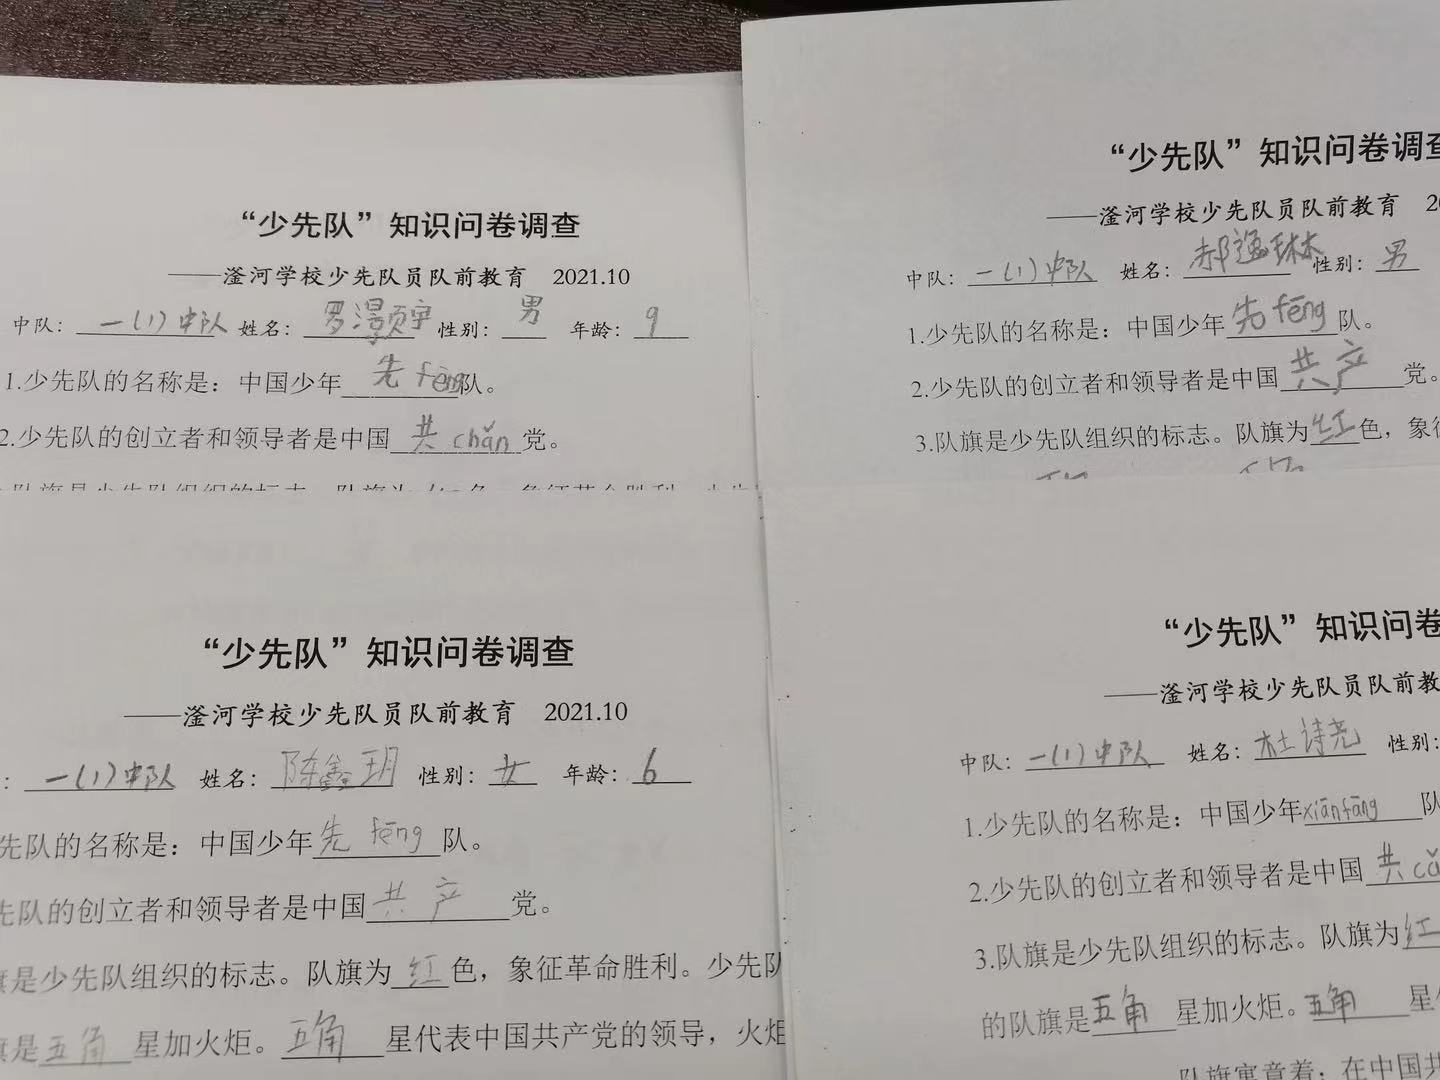 “少先队”知识问卷调查
——滏河学校少先队员队前教育 2021.10
中队：一(1)中队 姓名：罗灏颖宇 性别：男 年龄：9
1.少先队的名称是：中国少年先fēng队。
2.少先队的创立者和领导者是中国共chǎn党。
“少先队”知识问卷调查
——滏河学校少先队员队前教育 20
中队：一(1)中队 姓名：郝 琳 性别：男
1.少先队的名称是：中国少年先fēng队。
2.少先队的创立者和领导者是中国共产党。
3.队旗是少先队组织的标志。队旗为红色，象征
“少先队”知识问卷调查
——滏河学校少先队员队前教育 2021.10
：一(1)中队 姓名：陈鑫玥 性别：女 年龄：6
先队的名称是：中国少年先fēng队。
先队的创立者和领导者是中国共产党。
旗是少先队组织的标志。队旗为红色，象征革命胜利。少先队
旗是五角星加火炬。五角星代表中国共产党的领导，火炬
“少先队”知识问卷
——滏河学校少先队员队前教
中队：一(1)中队 姓名：杜诗尧 性别：
1.少先队的名称是：中国少年xiānfāng队
2.少先队的创立者和领导者是中国共cǎ
3.队旗是少先队组织的标志。队旗为红
的队旗是五角星加火炬。五角星
队旗寓意着：在中国共